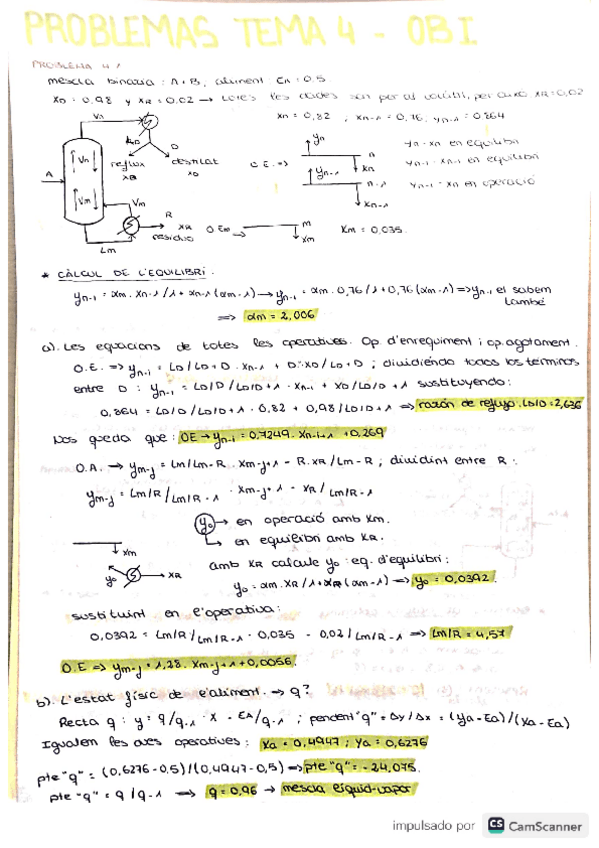 PROBLEMAS TEMA 4 - OBI
PROBLEMA 4.1
mescla binaria: A+B, aliment: EA = 0.5
XD = 0,98 y XR = 0,02 → totes les dades són per al volàtil, per això XR=0,02
Xn = 0,82 ; Xn-1 = 0,76, yn-1 = 0.864
Vn
LD
D
reflux
XD
destilat
XD
A
Vn
Vm
Vm
R
XR
residuo
Lm
O.E. =>
yn
n
Xn
yn-1
n-1
Xn-1
yn - Xn en equilibri
yn-1 - Xn-1 en equilibri
yn-1 - Xn en operació
m
Xm
Xm = 0,035.
* CÀLCUL DE L'EQUILIBRI.
yn-1 = αm. Xn-1 / 1 + Xn-1 (αm-1) → yn-1 = αm. 0,76 / 1+0,76 (αm-1) => yn-1 el sabem també
=> αm = 2,006
a). Les equacions de totes les operatives. Op. d'enriquiment i op. agotament.
O.E. => yn-1 = LD/LD+D · Xn-1 + D·XD/LD+D ; dividiendo todos los términos
entre D : yn-1 = LD/D / LD/D+1 · Xn-1 + XD / LD/D + 1 sustituyendo:
0,864 = LD/D / LD/D+1 · 0.82 + 0,98 / LD/D+1 => razón de reflujo LD/D = 2,636
Nos queda que: OE → yn-i = 0,7249. Xn-i+1 + 0,269
O.A. → ym-j = Lm/Lm-R. Xm-j+1 - R. XR / Lm-R ; dividint entre R:
ym-j = Lm/R / Lm/R-1 · Xm-j+1 - XR / Lm/R-1
y0 → en operació amb Xm.
→ en equilibri amb XR.
Xm
y0
XR
amb XR calcule y0 : eq. d'equilibri:
y0 = αm. XR / 1+XR (αm-1) => y0 = 0,0392.
sustituint en l'operativa:
0,0392 = Lm/R / Lm/R-1 · 0,035 - 0,02 / Lm/R-1 => Lm/R = 4,57
O.E => ym-j = 1,28. Xm-j+1 + 0,0056.
b). L'estat físic de l'aliment. → q?
Recta q : y = q/q-1 · X - EA/q-1 ; pendent "q" = Δy/Δx = (ya - EA)/(Xa - EA)
Igualem les dues operatives: Xa = 0,4947 ; Ya = 0,6276
pte "q" = (0,6276-0,5)/(0,4947-0,5) => pte "q" = -24,075.
pte "q" = q/q-1 => q = 0,96 → mescla líquid-vapor
impulsado por CS CamScanner